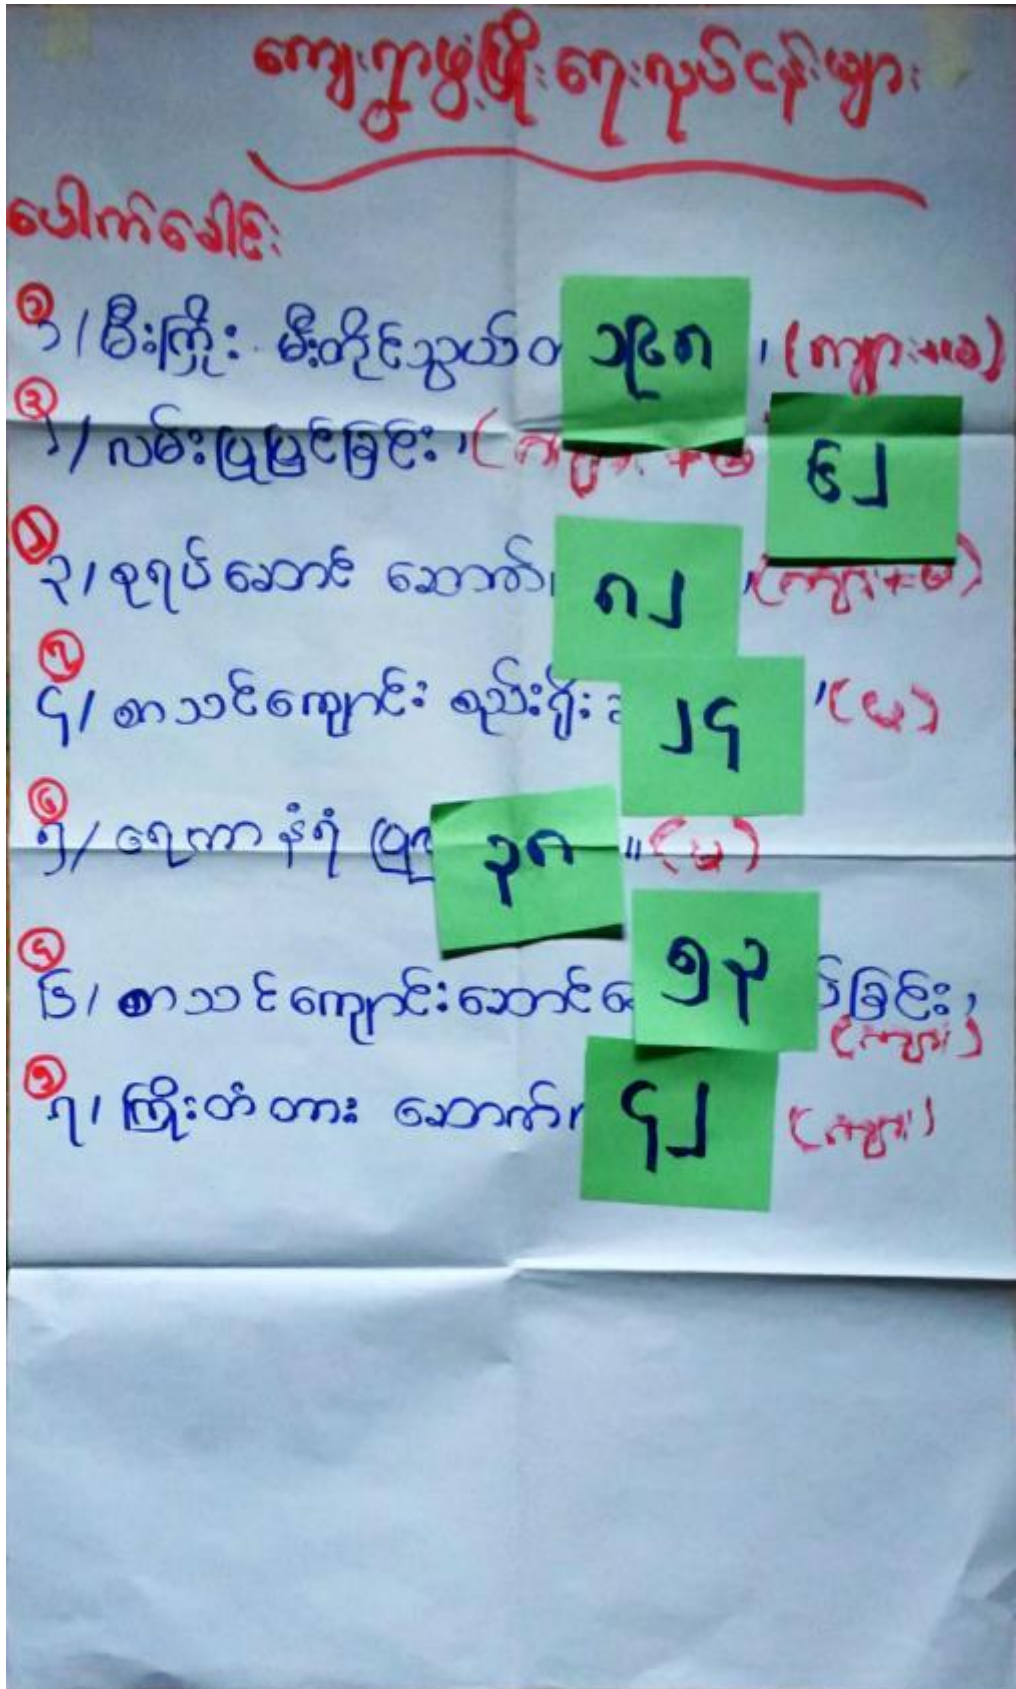 ကျေးရွာဖွံ့ဖြိုးရေးလုပ်ငန်းများ
ပေါက်ခေါင်း
၁/ မီးကြိုး မီးတိုင်သွယ်တ ၁၉၈ ၊ (ကျား+မ)
၃ ၂/ လမ်းပြုပြင်ခြင်း ၊ (ကျား+မ ၆၂
၃/ စုရပ်ဆောင် ဆောက် ၈၂ ၊ (ကျား+မ)
၇ ၄/ စာသင်ကျောင်း စည်းရိုး ၂၄ ၊ (မ)
၆ ၅/ ရေကာနံရံ ပြု ၃၈ ။ (မ)
၆/ စာသင်ကျောင်းဆောင် ၅၃ ခြင်း ၊ (ကျား)
၇/ ကြိုးတံတား ဆောက် ၄၂ (ကျား)